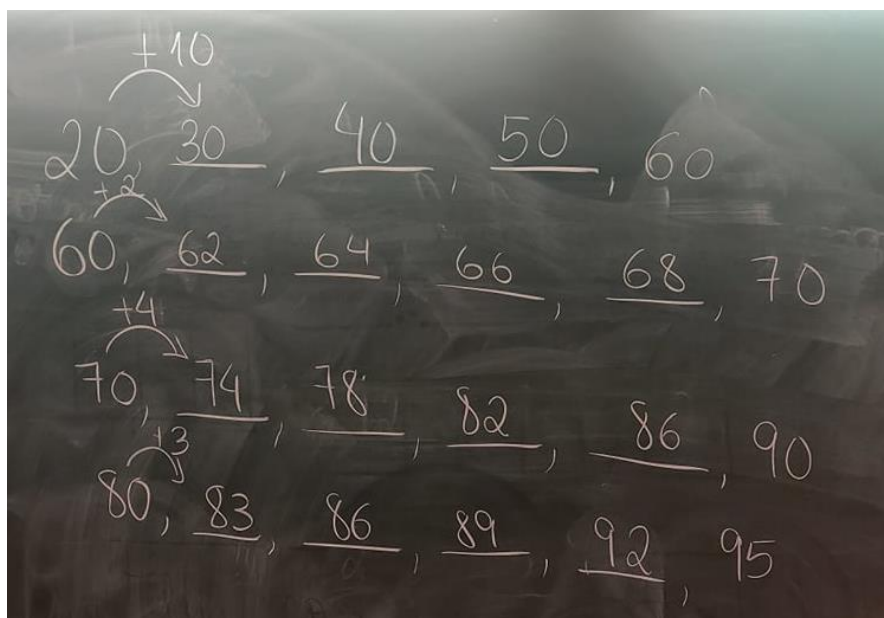 +10
20, 30, 40, 50, 60
+2
60, 62, 64, 66, 68, 70
+4
70, 74, 78, 82, 86, 90
+3
80, 83, 86, 89, 92, 95